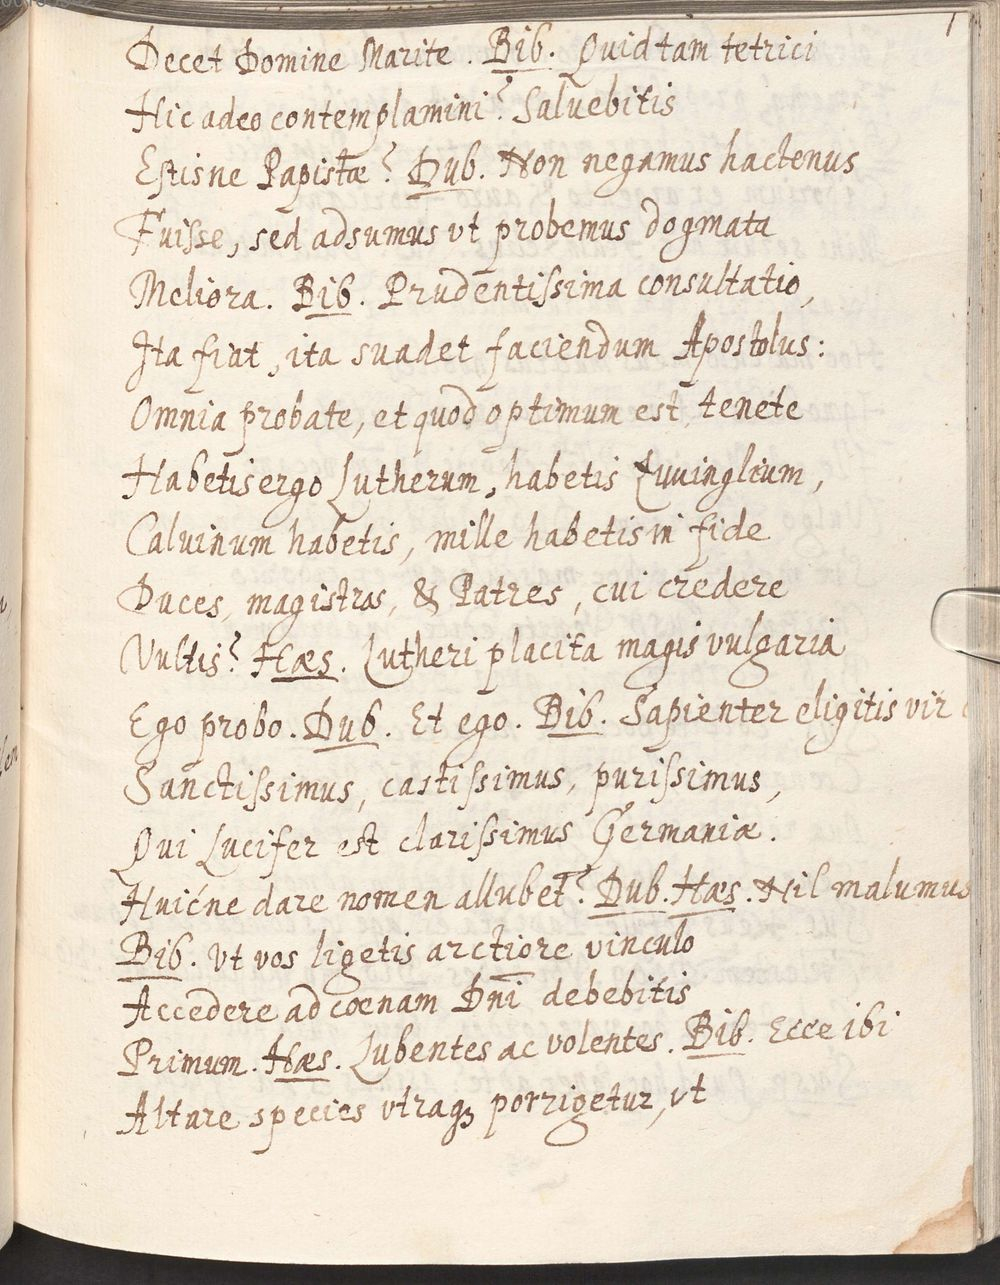 Decet Domine Marite. Bib. Quid tam tetrici
Hic adeo contemplamini? Saluebitis
Estisne Papistæ? Dub. Non negamus hactenus
Fuisse, sed adsumus vt probemus dogmata
Meliora. Bib. Prudentissima consultatio,
Ita fiat, ita suadet faciendum Apostolus:
Omnia probate, et quod optimum est tenete
Habetis ergo Lutherum, habetis Zuuinglium,
Caluinum habetis, mille habetis in fide
Duces, magistros, & Patres, cui credere
Vultis? Hæs. Lutheri placita magis vulgaria
Ego probo. Dub. Et ego. Bib. Sapienter eligitis vir
Sanctissimus, castissimus, purissimus,
Qui Lucifer est clarissimus Germaniæ.
Huićne dare nomen allubet? Dub. Hæs. Nil malumus
Bib. Vt vos ligetis arctiore vinculo
Accedere ad coenam Dnī debebitis
Primum. Hæs. Lubentes ac volentes. Bib. Ecce ibi
Altare species vtraqȝ porrigetur, vt